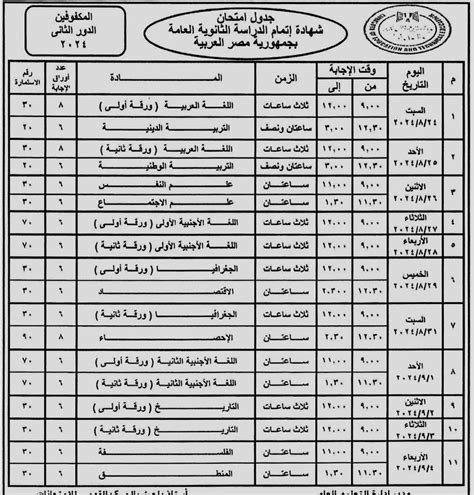 جدول امتحان
شهادة إتمام الدراسة الثانوية العامة
بجمهورية مصر العربية
المكفوفين
الدور الثانى
٢٠٢٤
م اليوم التاريخ وقت الإجابة من إلى الزمن المادة عدد أوراق الإجابة رقم الاستمارة
١ السبت ٢٠٢٤/٨/٢٤ ٩,٠٠ ١٢,٠٠ ثلاث ساعات اللغة العربية ( ورقة أولى ) ٨ ٣٠
١٢,٣٠ ٣,٠٠ ساعتان ونصف التربية الدينية ٦ ٢٠
٢ الأحد ٢٠٢٤/٨/٢٥ ٩,٠٠ ١٢,٠٠ ثلاث ساعات اللغة العربية ( ورقة ثانية ) ٨ ٣٠
١٢,٣٠ ٣,٠٠ ساعتان ونصف التربية الوطنية ٦ ٢٠
٣ الاثنين ٢٠٢٤/٨/٢٦ ٩,٠٠ ١١,٠٠ ساعتان علم النفس ٦ ٣٠
١١,٣٠ ١,٣٠ ساعتان علم الاجتماع ٦ ٣٠
٤ الثلاثاء ٢٠٢٤/٨/٢٧ ٩,٠٠ ١٢,٠٠ ثلاث ساعات اللغة الأجنبية الأولى ( ورقة أولى ) ٦ ٧٠
٥ الأربعاء ٢٠٢٤/٨/٢٨ ٩,٠٠ ١٢,٠٠ ثلاث ساعات اللغة الأجنبية الأولى ( ورقة ثانية ) ٦ ٧٠
٦ الخميس ٢٠٢٤/٨/٢٩ ٩,٠٠ ١٢,٠٠ ثلاث ساعات الجغرافيا ( ورقة أولى ) ٦ ٣٠
١٢,٣٠ ٢,٣٠ ساعتان الاقتصاد ٦ ٣٠
٧ السبت ٢٠٢٤/٨/٣١ ٩,٠٠ ١٢,٠٠ ثلاث ساعات الجغرافيا ( ورقة ثانية ) ٦ ٣٠
١٢,٣٠ ٢,٣٠ ساعتان الإحصاء ٨ ٩٠
٨ الأحد ٢٠٢٤/٩/١ ٩,٠٠ ١١,٠٠ ساعتان اللغة الأجنبية الثانية ( ورقة أولى ) ٦ ٧٠
١١,٣٠ ١,٣٠ ساعتان اللغة الأجنبية الثانية ( ورقة ثانية ) ٦ ٧٠
٩ الاثنين ٢٠٢٤/٩/٢ ٩,٠٠ ١٢,٠٠ ثلاث ساعات التاريخ ( ورقة أولى ) ٦ ٣٠
١٠ الثلاثاء ٢٠٢٤/٩/٣ ٩,٠٠ ١٢,٠٠ ثلاث ساعات التاريخ ( ورقة ثانية ) ٦ ٣٠
١١ الأربعاء ٢٠٢٤/٩/٤ ٩,٠٠ ١١,٠٠ ساعتان الفلسفة ٦ ٣٠
١١,٣٠ ١,٣٠ ساعتان المنطق ٦ ٣٠